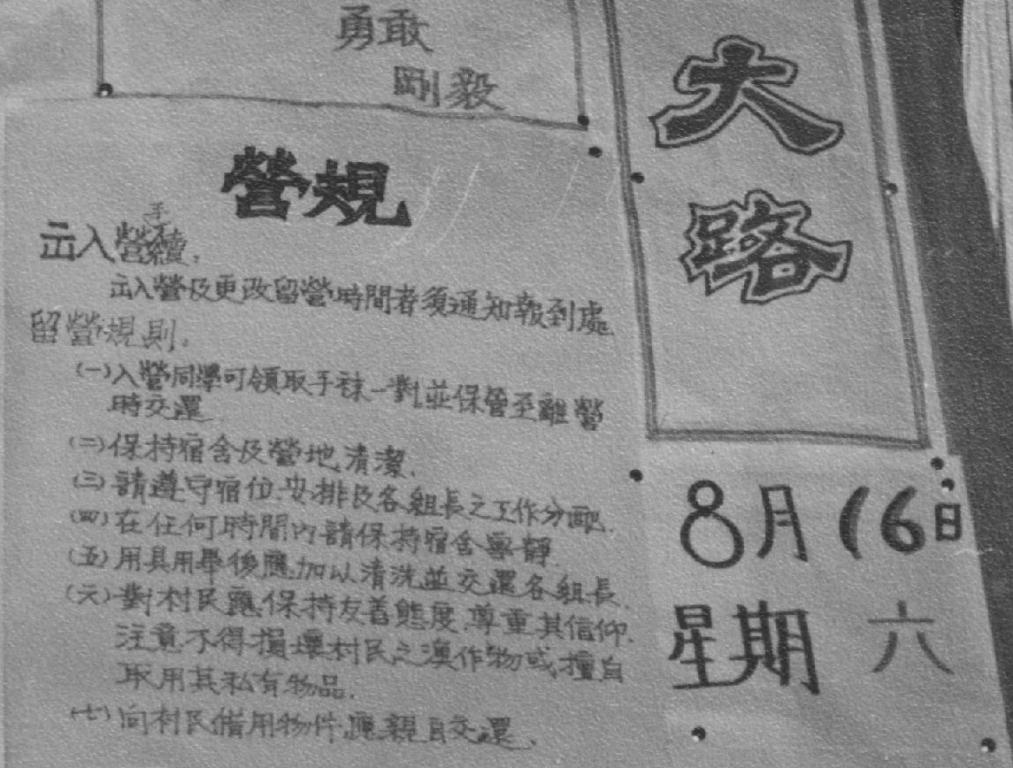 勇敢
剛毅
營規
出入營手續.
出入營及更改留營時間者須通知報到處.
留營規則.
(一)入營同學可領取手袜一對並保管至離營
時交還
(二)保持宿舍及營地清潔.
(三)請遵守宿位安排及各組長之工作分配.
(四)在任何時間內請保持宿舍寧靜.
(五)用具用畢後應加以清洗並交還各組長.
(六)對村民應保持友善態度,尊重其信仰.
注意不得損壞村民之農作物或擅自
取用其私有物品.
(七)向村民借用物件應親自交還.
大
路
8月16日
星期六